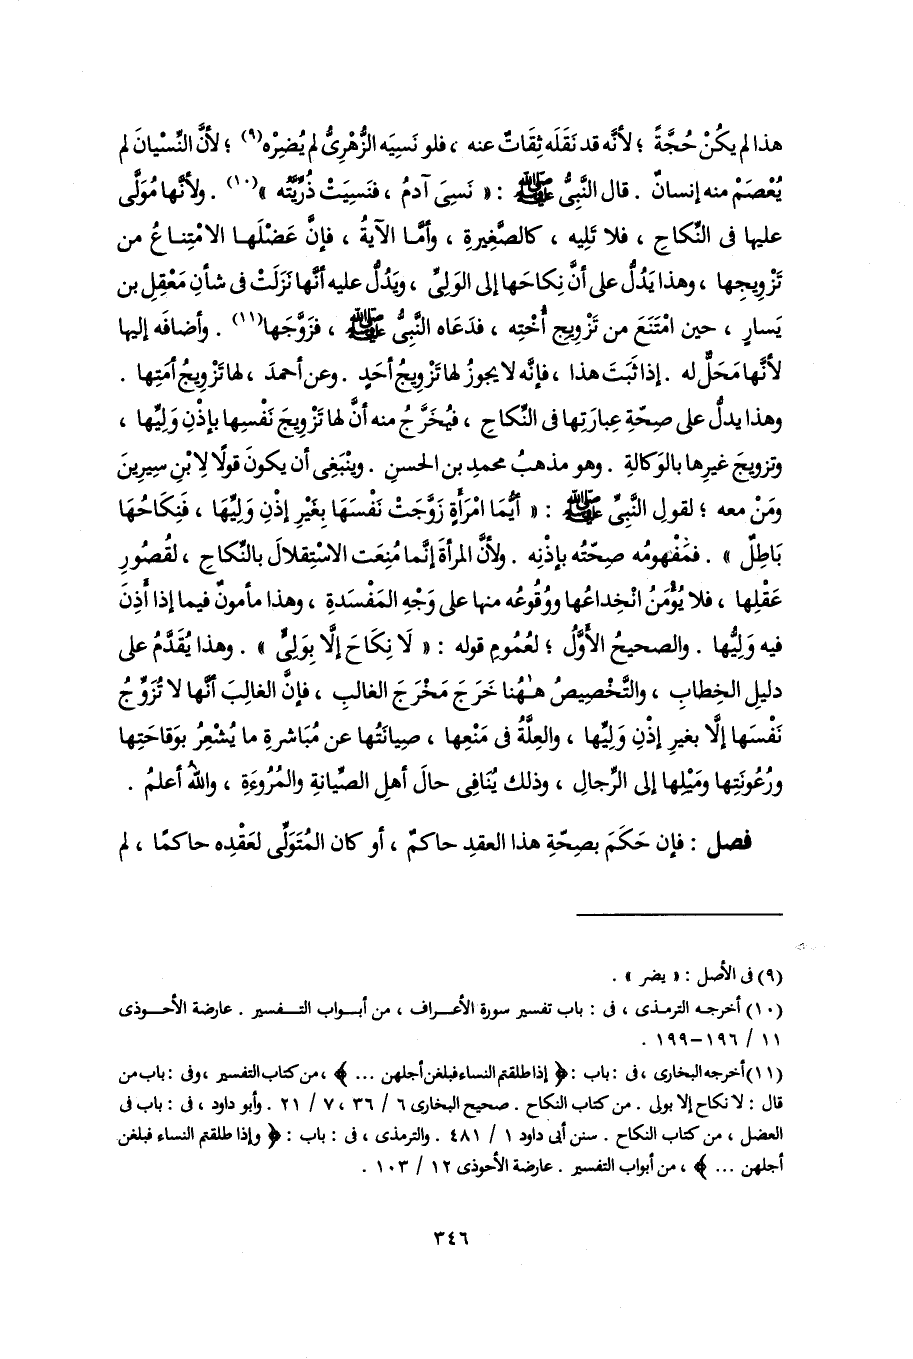 هذا لم يكنْ حُجَّةً ؛ لأنَّه قد نَقَلَه ثِقَاتٌ عنه ، فلو نَسِيَه الزُّهْرِىُّ لم يُضِرْه(٩) ؛ لأنَّ النِّسْيانَ لم
يُعْصَمْ منه إنسانٌ . قال النَّبِىُّ ﷺ : « نَسِىَ آدمُ ، فنَسِيَتْ ذُرِّيَّتُه »(١٠) . ولأنَّها مُوَلَّى
عليها فى النِّكاحِ ، فلا تَلِيه ، كالصَّغِيرةِ ، وأمَّا الآيةُ ، فإنَّ عَضْلَها الامْتِناعُ من
تَزْوِيجِها ، وهذا يَدُلُّ على أنَّ نِكاحَها إلى الوَلِىِّ ، ويَدُلُّ عليه أنَّها نَزَلَتْ فى شأنِ مَعْقِلِ بن
يَسارٍ ، حين امْتَنَعَ من تَزْوِيجِ أُخْتِه ، فدَعَاه النَّبِىُّ ﷺ ، فزَوَّجَها(١١) . وأضافَه إليها
لأنَّها مَحَلٌّ له . إذا ثَبَتَ هذا ، فإنَّه لا يجوزُ لها تَزْوِيجُ أحَدٍ . وعن أحمدَ ، لها تَزْوِيجُ أمَتِها .
وهذا يدلُّ على صِحّةِ عِبارَتِها فى النِّكاحِ ، فيُخَرَّجُ منه أنَّ لها تَزْوِيجَ نَفْسِها بإذْنِ وَلِيِّها ،
وتزويجَ غيرِها بالوَكالةِ . وهو مذهبُ محمدِ بن الحسنِ . ويَنْبَغِى أن يكونَ قولًا لِابْنِ سِيرِينَ
ومَنْ معه ؛ لقولِ النَّبِىِّ ﷺ : « أَيُّمَا امْرَأَةٍ زَوَّجَتْ نَفْسَهَا بِغَيْرِ إذْنِ وَلِيِّهَا ، فَنِكَاحُهَا
بَاطِلٌ » . فمَفْهومُه صِحّتُه بإذْنِه . ولأنَّ المرأةَ إنَّما مُنِعَت الاسْتِقلالَ بالنِّكاحِ ، لقُصُورِ
عَقْلِها ، فلا يُؤْمَنُ انْخِداعُها ووُقُوعُه منها على وَجْهِ المَفْسَدةِ ، وهذا مأمونٌ فيما إذا أَذِنَ
فيه وَلِيُّها . والصحيحُ الأَوَّلُ ؛ لعُمُومِ قوله : « لَا نِكَاحَ إلَّا بِوَلِىٍّ » . وهذا يُقَدَّمُ على
دليلِ الخِطابِ ، والتَّخْصِيصُ هٰهُنا خَرَجَ مَخْرَجَ الغالبِ ، فإنَّ الغالِبَ أنَّها لا تُزَوِّجُ
نَفْسَها إلَّا بغيرِ إذْنِ وَلِيِّها ، والعِلَّةُ فى مَنْعِها ، صِيانَتُها عن مُبَاشرةِ ما يُشْعِرُ بوَقاحَتِها
ورُعُونَتِها ومَيْلِها إلى الرِّجالِ ، وذلك يُنَافِى حالَ أهلِ الصِّيانةِ والمُرُوءَةِ ، واللهُ أعلمُ .
فصل : فإن حَكَمَ بصِحّةِ هذا العقدِ حاكمٌ ، أو كان المُتَوَلِّى لعَقْدِه حاكمًا ، لم
(٩) فى الأصل : « يضر » .
(١٠) أخرجه الترمذى ، فى : باب تفسير سورة الأعراف ، من أبواب التفسير . عارضة الأحوذى
١١ / ١٩٦-١٩٩ .
(١١) أخرجه البخارى ، فى : باب : ﴿ إذا طلقتم النساء فبلغن أجلهن ... ﴾ ، من كتاب التفسير ، وفى : باب من
قال : لا نكاح إلا بولى . من كتاب النكاح . صحيح البخارى ٦ / ٣٦ ، ٧ / ٢١ . وأبو داود ، فى : باب فى
العضل ، من كتاب النكاح . سنن أبى داود ١ / ٤٨١ . والترمذى ، فى : باب : ﴿ وإذا طلقتم النساء فبلغن
أجلهن ... ﴾ ، من أبواب التفسير . عارضة الأحوذى ١٢ / ١٠٣ .
٣٤٦